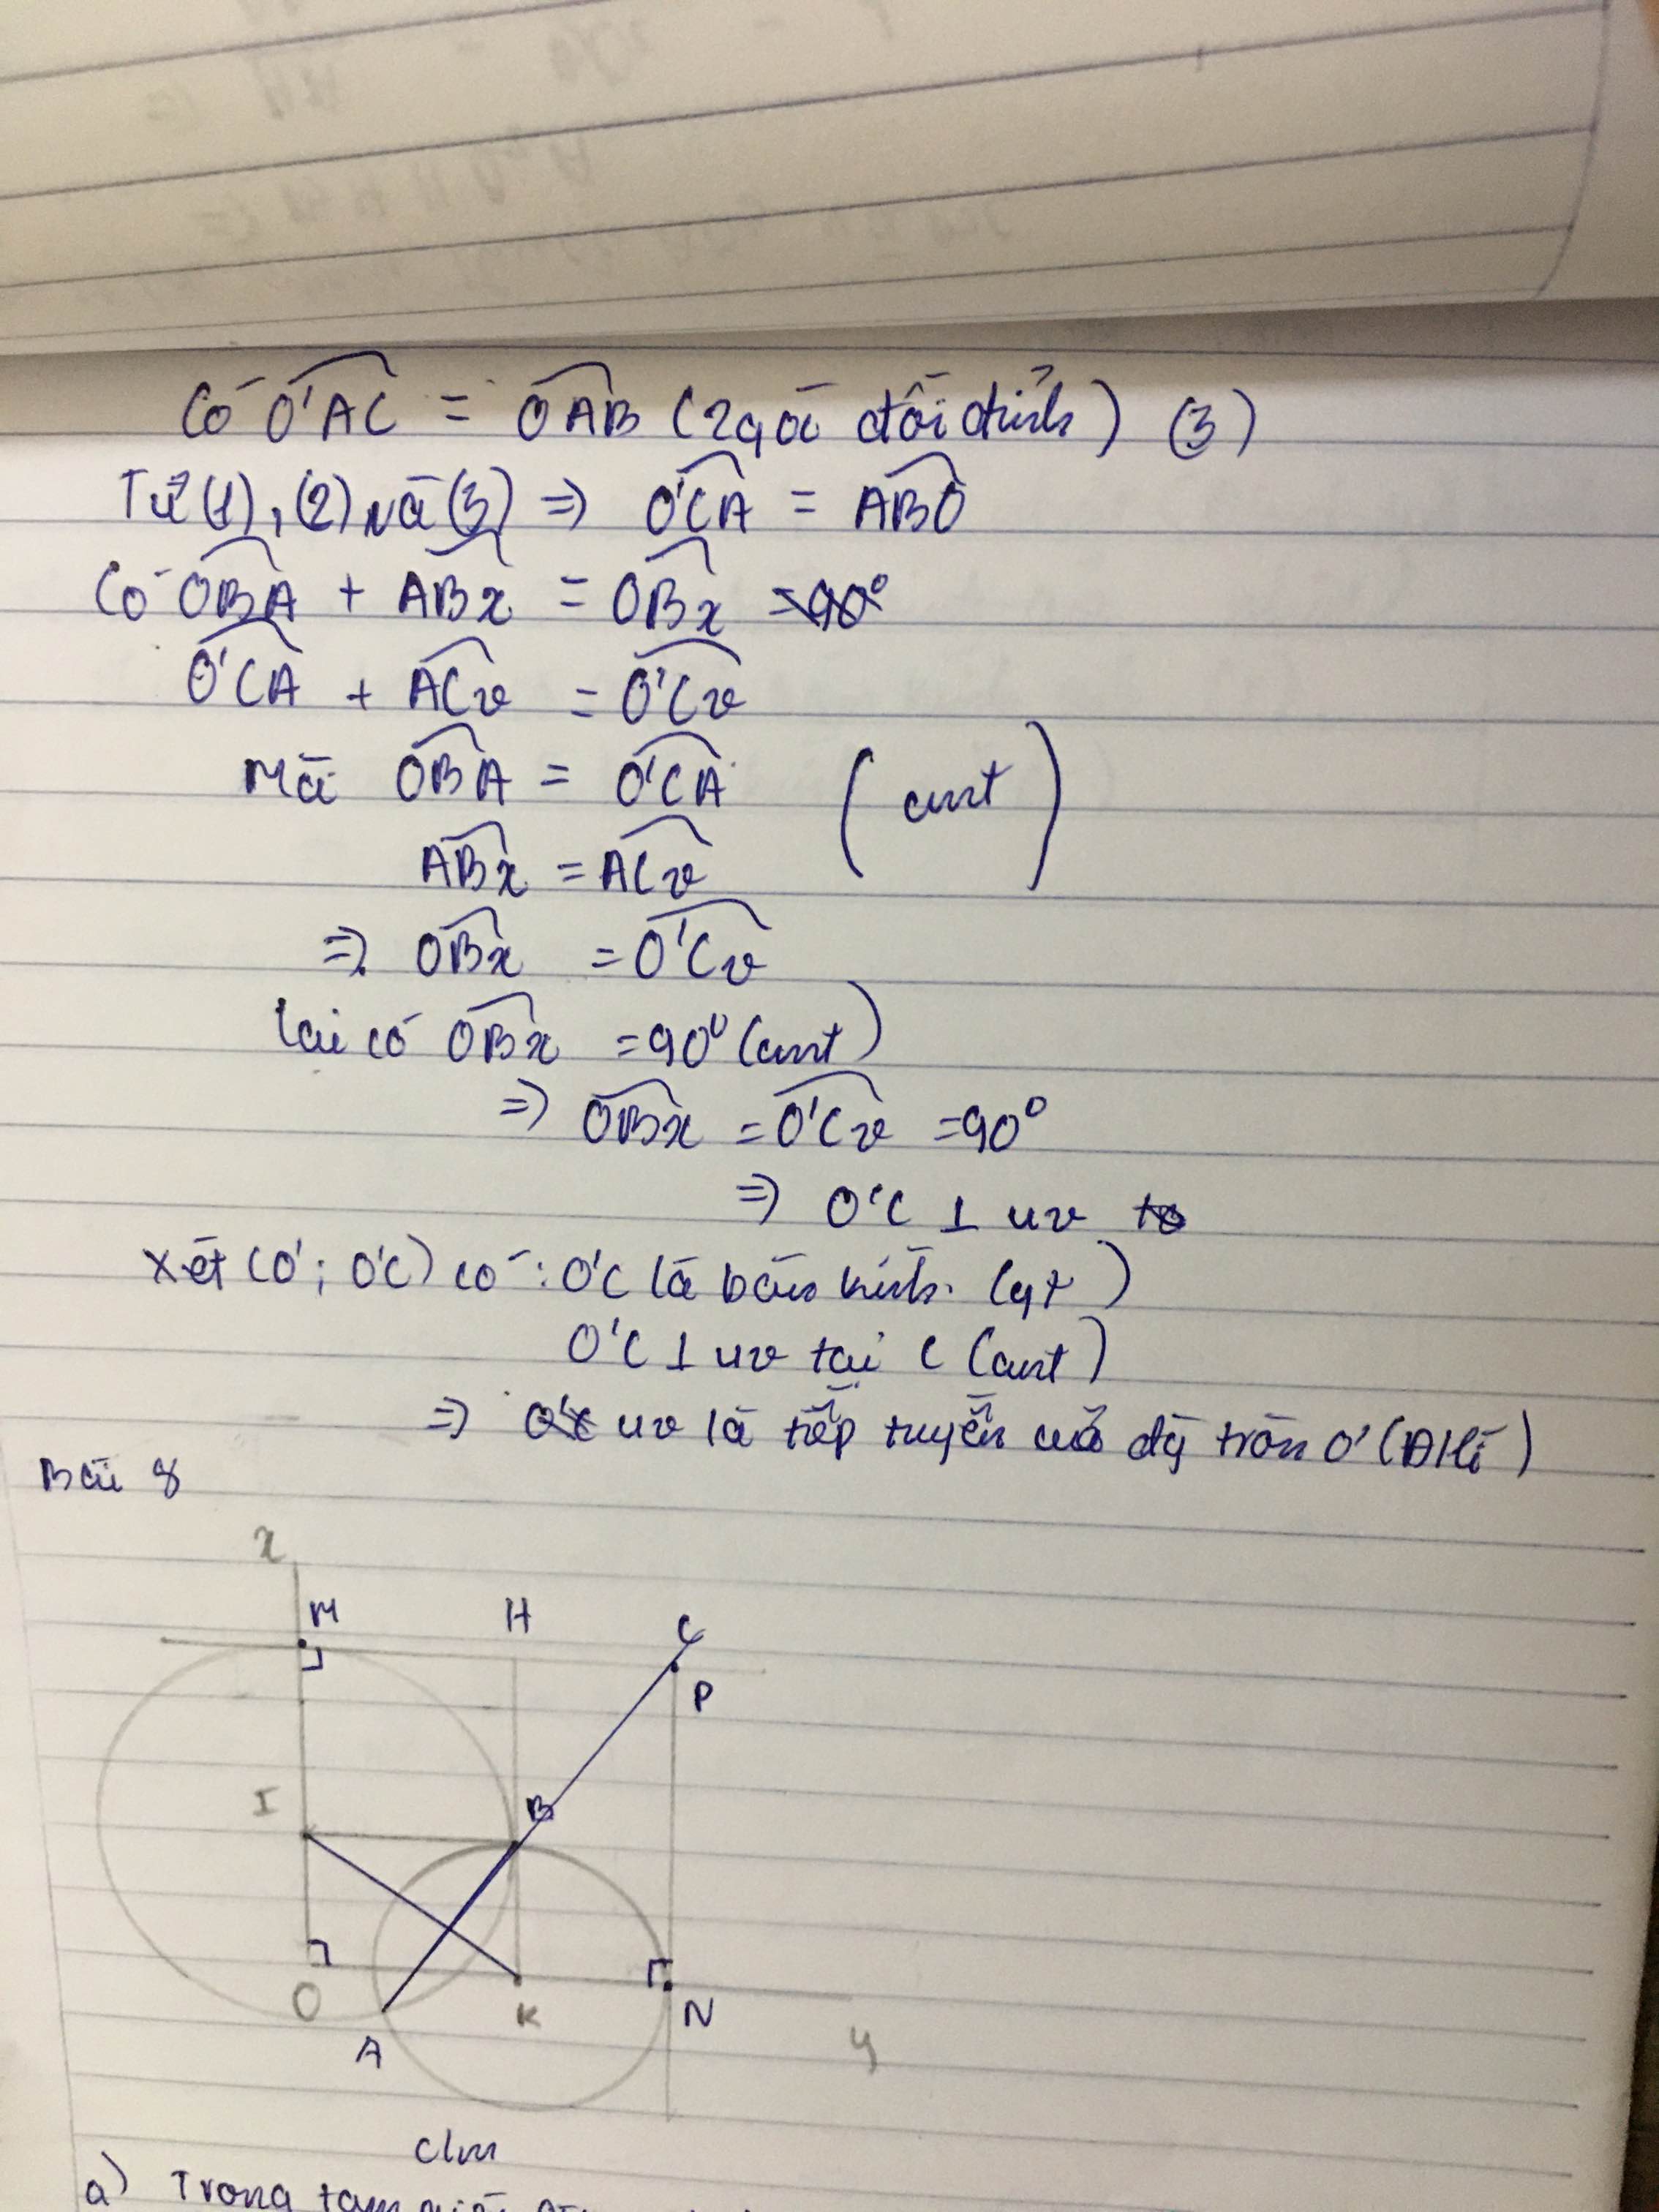 Có O'AC = OAB (2 góc đối đỉnh) (3)
Từ (1), (2) và (3) => O'CA = ABO
Có OBA + ABx = OBx = 90°
O'CA + ACv = O'Cv
Mà OBA = O'CA (cmt)
ABx = ACv
=> OBx = O'Cv
lại có OBx = 90° (cmt)
=> OBx = O'Cv = 90°
=> O'C ⊥ uv
Xét (O'; O'C) có: O'C là bán kính. (gt)
O'C ⊥ uv tại C (cmt)
=> uv là tiếp tuyến của đg tròn O' (DHi)
Bài 8
x
M H C
P
I B
O K N
A y
CM
a) Trong tam giác